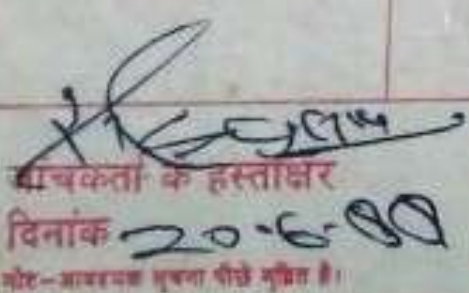 जांचकर्ता के हस्ताक्षर
दिनांक 20-6-
नोट-आवश्यक सूचना पीछे मुद्रित है।